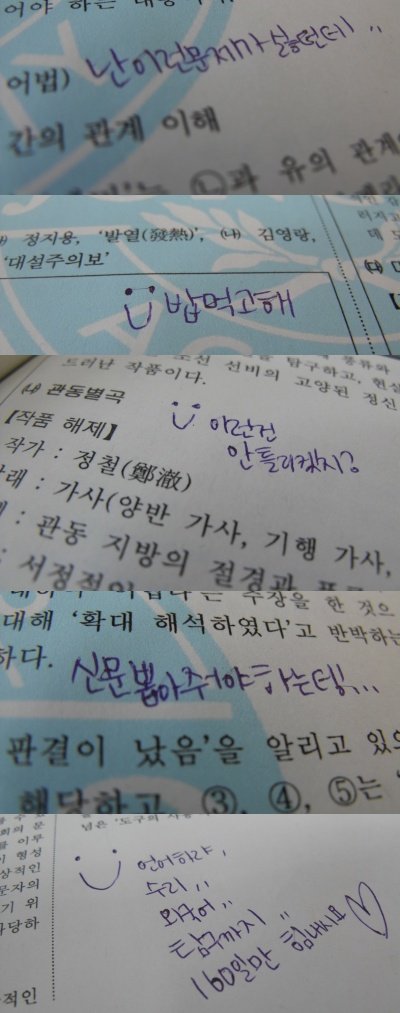 어야 하는
어법) 난 이런문제가 싫던데..
간의 관계 이해
ⓛ과 유의 관계
) 정지용, '발열(發熱)', (나) 김영랑,
'대설주의보'
밥먹고해
조선 선비의 고양된 정신
드러난 작품이다.
(나) 관동별곡
【작품 해제】
이런건
안틀리겠지?
작가 : 정철(鄭澈)
: 가사(양반 가사, 기행 가사,
: 관동 지방의 절경과
: 서정적인
주장을 한 것으
대해 '확대 해석하였다'고 반박하는
하다.
신문뽑아줘야하는뎅...
판결이 났음'을 알리고 있으
해당하고, ③, ④, ⑤는
넘은 '도구의
언어하랴,
수리,,
외국어,,
탐구까지,,
160일만 힘내시요♡